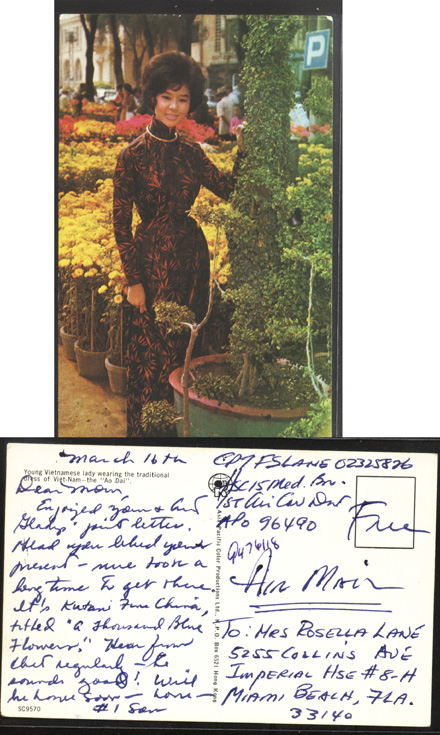 P
Young Vietnamese lady wearing the traditional
dress of Viet-Nam—the "Ao Dai".
March 16th
Dear Mom,
Enjoyed your & Aunt
Gladys' joint letter.
Glad you liked your
present – sure took a
long time to get there.
It's Kutani Fine China,
titled "a Thousand Blue
Flowers." Hear from
Chet regularly – he
sounds good! Will
be home soon – love –
#1 Son
SC9570
Asia Pacific Color Productions Ltd., G.P.O. Box 6521 Hong Kong
CPT FS LANE 02325826
15 Med. Bn.
1st Air Cav Div
APO 96490
Free
Air Mail
To: Mrs Rosella Lane
5255 Collins Ave
Imperial Hse #8-H
Miami Beach, Fla.
33140